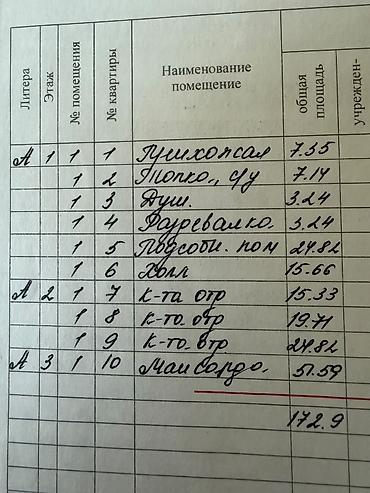 Литера Этаж № помещения № квартиры Наименование помещение общая площадь учрежден-
А 1 1 1 7.35
1 2 Топко., с/у 7.14
1 3 Душ. 3.24
1 4 3.24
1 5 Подсобн. пом 24.82
1 6 Холл 15.66
А 2 1 7 к-та отр 15.33
1 8 к-то. отр 19.71
1 9 к-то. отр 24.82
А 3 1 10 Мансардо. 51.59
172.9